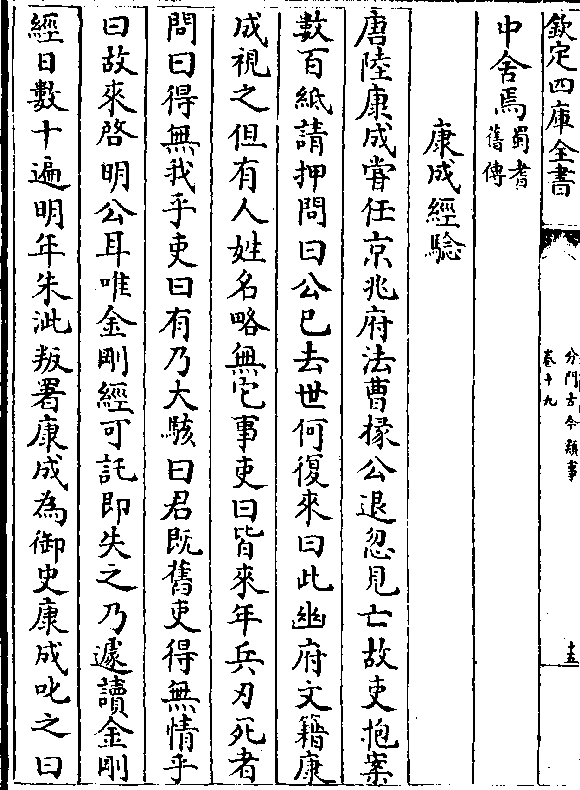 欽定四庫全書
分門古今類事
卷十九
十五
中舍焉蜀耆舊傳
康成經驗
唐陸康成嘗任京兆府法曹掾公退忽見亡故吏抱案
數百紙請押問曰公已去世何復來曰此幽府文籍康
成視之但有人姓名略無它事吏曰皆來年兵刃死者
問曰得無我乎吏曰有乃大駭曰君既舊吏得無情乎
曰故來啓明公耳唯金剛經可託即失之乃遽讀金剛
經日數十遍明年朱泚叛署康成為御史康成叱之曰